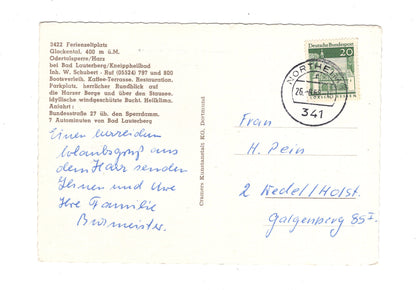 3422 Ferienzeltplatz
Glockental, 400 m ü.M.
Odertalsperre/Harz
bei Bad Lauterberg/Kneippheilbad
Inh. W. Schubert - Ruf (05524) 797 und 800
Bootsverleih. Kaffee-Terrasse. Restauration.
Parkplatz, herrlicher Rundblick auf
die Harzer Berge und über den Stausee.
Idyllische windgeschützte Bucht. Heilklima.
Anfahrt:
Bundesstraße 27 üb. den Sperrdamm.
7 Autominuten von Bad Lauterberg
Einen
Urlaubsgruß aus
dem Harz senden
Ihnen und Uwe
Ihre Familie
Burmeister.
Cramers Kunstanstalt KG, Dortmund
Deutsche Bundespost
20
NORTHEIM
26.
341
Frau
H. Pein
2 Wedel/Holst.
Galgenberg 85 I.